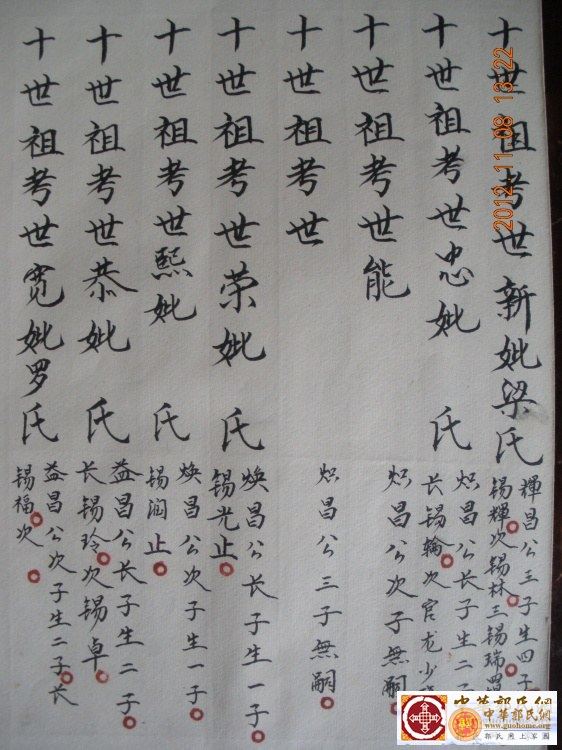 十世祖考世新妣梁氏
輝昌公三子生四子
锡輝次锡林三锡瑞四
十世祖考世忠妣 氏
炽昌公长子生二子
长锡輪次官龙少
十世祖考世能
炽昌公次子無嗣
十世祖考世
炽昌公三子無嗣
十世祖考世荣妣 氏
焕昌公长子生一子
锡光止
十世祖考世熙妣 氏
焕昌公次子生一子
锡润止
十世祖考世恭妣 氏
益昌公长子生二子
长锡玲次锡卓
十世祖考世宽妣罗氏
益昌公次子生二子长
锡福次
2012.11.08 13:22
中華郭氏網
中華郭氏網
www.guohome.org
郭氏网上家園